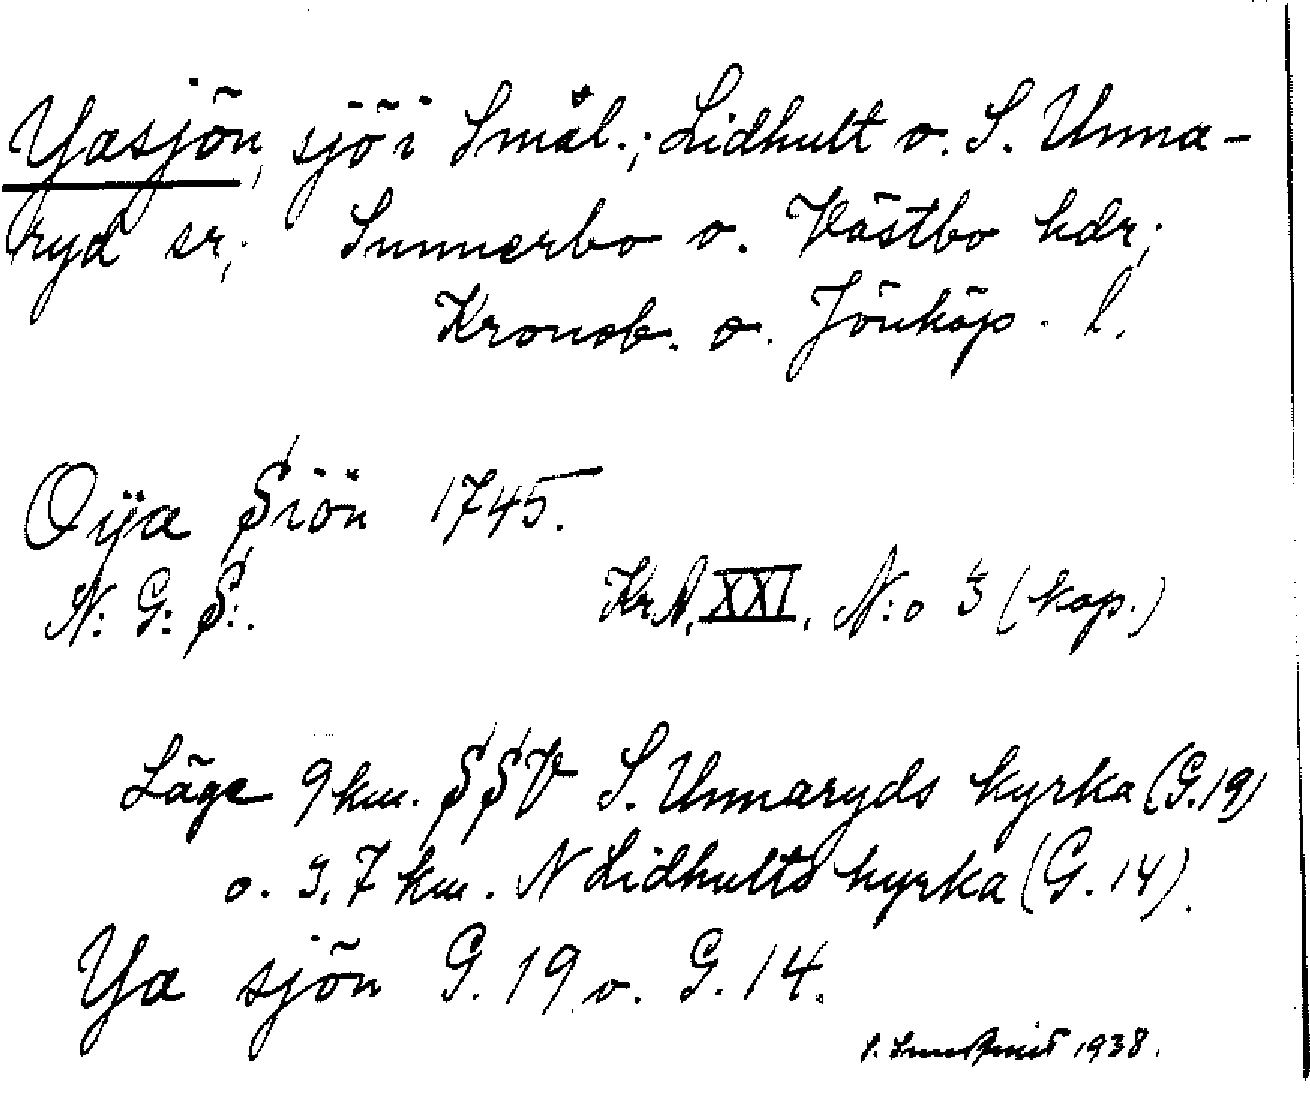 Yasjön, sjö i Smål.; Lidhult o. S. Unna-
ryd sr; Sunnerbo o. Västbo hdr;
Kronob. o. Jönköp. l.
Oÿa Siön 1745.
N: G: S:. Kr.A. XXI. N:o 3 (kop.)
Läge 9 km. SSV S. Unnaryds kyrka (G.19)
o. 3,7 km. N Lidhults kyrka (G. 14).
Ya sjön G. 19 o. G. 14.
1938.